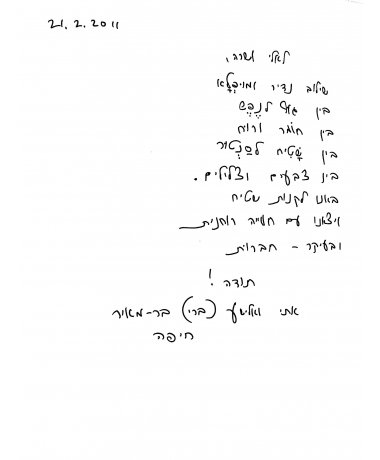 21.2.2011
לאלי ושרה,
שילוב נדיר ומופלא
בין גוף לנֶפֶש
בין חומר ורוח
בין שָטִיח לסַנְטור
בין צבעים וצלילים.
באנו לקנות שטיח
ויצאנו עם חוויה רוחנית
ובעיקר - חברות
תודה!
אתי ואלישע (ברי) בר-מאיר
חיפה